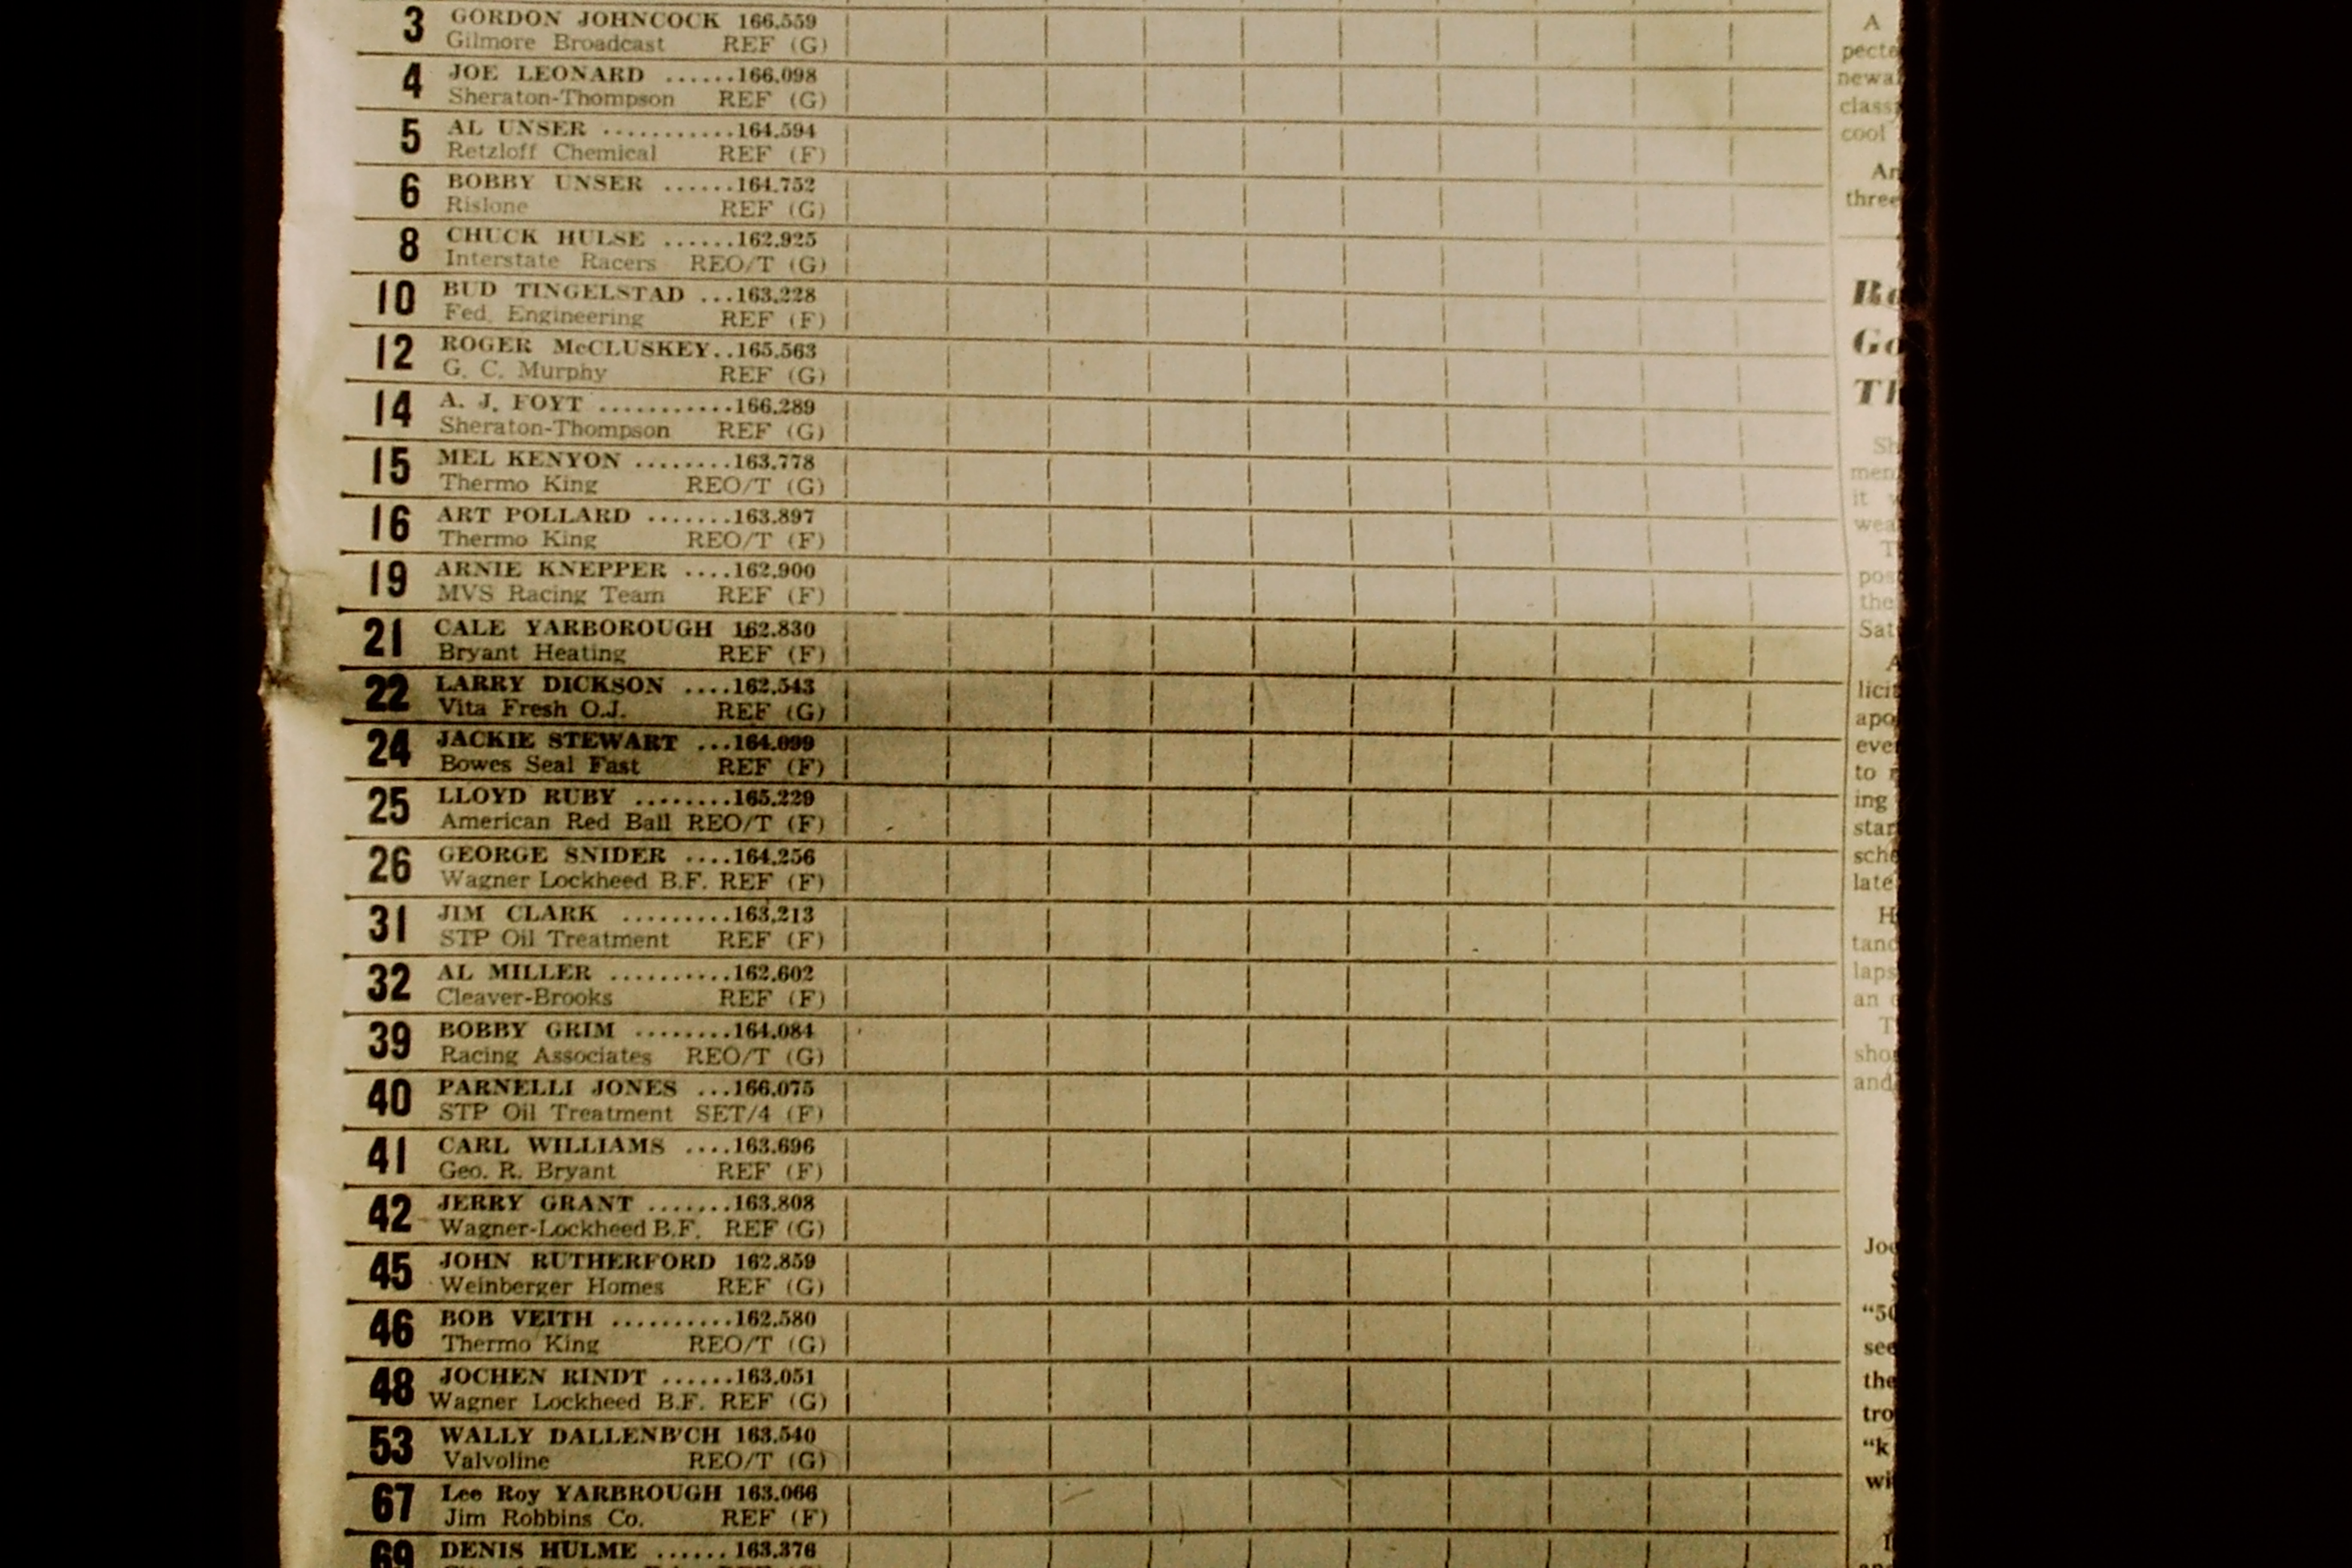 3 GORDON JOHNCOCK 166.559
Gilmore Broadcast REF (G)
4 JOE LEONARD ......166.098
Sheraton-Thompson REF (G)
5 AL UNSER ...........164.594
Retzloff Chemical REF (F)
6 BOBBY UNSER ......164.752
Rislone REF (G)
8 CHUCK HULSE ......162.925
Interstate Racers REO/T (G)
10 BUD TINGELSTAD ...163.228
Fed. Engineering REF (F)
12 ROGER McCLUSKEY..165.563
G. C. Murphy REF (G)
14 A. J. FOYT ...........166.289
Sheraton-Thompson REF (G)
15 MEL KENYON ........163.778
Thermo King REO/T (G)
16 ART POLLARD .......163.897
Thermo King REO/T (F)
19 ARNIE KNEPPER ....162.900
MVS Racing Team REF (F)
21 CALE YARBOROUGH 162.830
Bryant Heating REF (F)
22 LARRY DICKSON ....162.543
Vita Fresh O.J. REF (G)
24 JACKIE STEWART ...164.099
Bowes Seal Fast REF (F)
25 LLOYD RUBY ........165.229
American Red Ball REO/T (F)
26 GEORGE SNIDER ....164.256
Wagner Lockheed B.F. REF (F)
31 JIM CLARK .........163.213
STP Oil Treatment REF (F)
32 AL MILLER ..........162.602
Cleaver-Brooks REF (F)
39 BOBBY GRIM ........164.084
Racing Associates REO/T (G)
40 PARNELLI JONES ...166.075
STP Oil Treatment SET/4 (F)
41 CARL WILLIAMS ....163.696
Geo. R. Bryant REF (F)
42 JERRY GRANT .......163.808
Wagner-Lockheed B.F. REF (G)
45 JOHN RUTHERFORD 162.859
Weinberger Homes REF (G)
46 BOB VEITH ..........162.580
Thermo King REO/T (G)
48 JOCHEN RINDT ......163.051
Wagner Lockheed B.F. REF (G)
53 WALLY DALLENB'CH 163.540
Valvoline REO/T (G)
67 Lee Roy YARBROUGH 163.066
Jim Robbins Co. REF (F)
69 DENIS HULME ......163.376
A
cool
three
it
the
to
ing
late
an
and
see
the